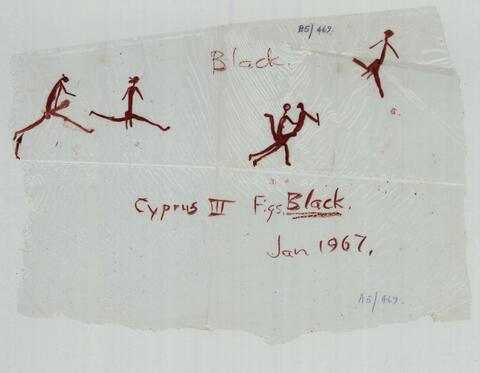 A5/469.
Black.
1.
2.
3.
Cyprus III Figs. Black.
Jan 1967.
A5/469.